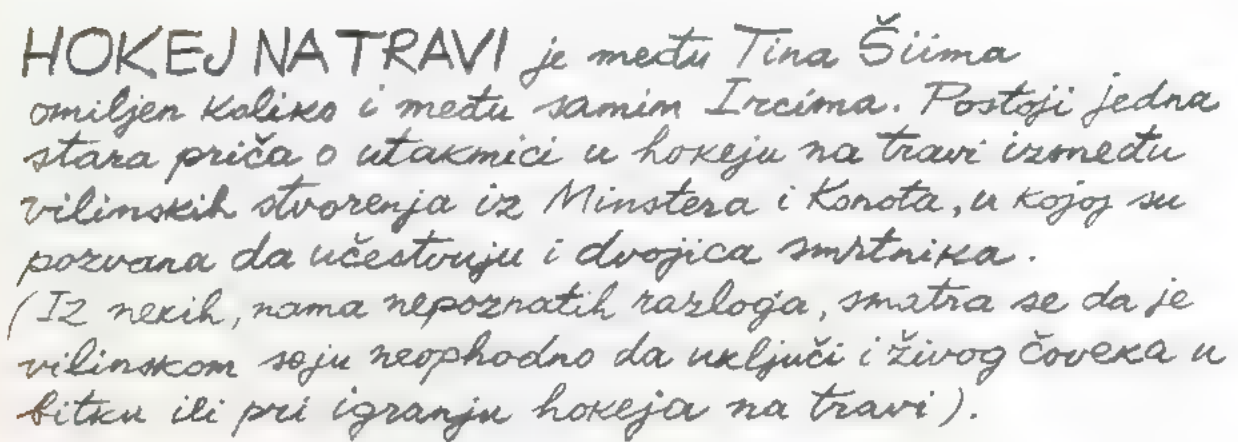 HOKEJ NA TRAVI je među Tina Šiima
omiljen koliko i među samim Ircima. Postoji jedna
stara priča o utakmici u hokeju na travi između
vilinskih stvorenja iz Minstera i Konota, u kojoj su
pozvana da učestvuju i dvojica smrtnika.
(Iz nekih, nama nepoznatih razloga, smatra se da je
vilinskom soju neophodno da uključi i živog čoveka u
bitku ili pri igranju hokeja na travi).